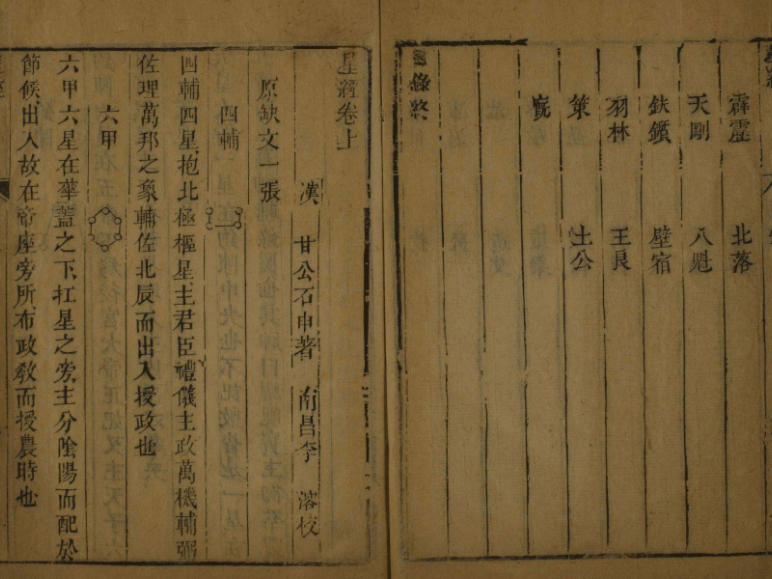 霹靂 北落
天剛 八魁
鈇鑕 壁宿
羽林 王良
策 土公
廐
目錄終
星經卷上
漢 甘公石申著 南昌李 校
原缺文一張
四輔
四輔四星抱北極樞星主君臣禮儀主政萬機輔弼
佐理萬邦之象輔佐北辰而出入授政也
六甲
六甲六星在華蓋之下扛星之旁主分陰陽而配於
節候出入故在帝座旁所布政教而授農時也